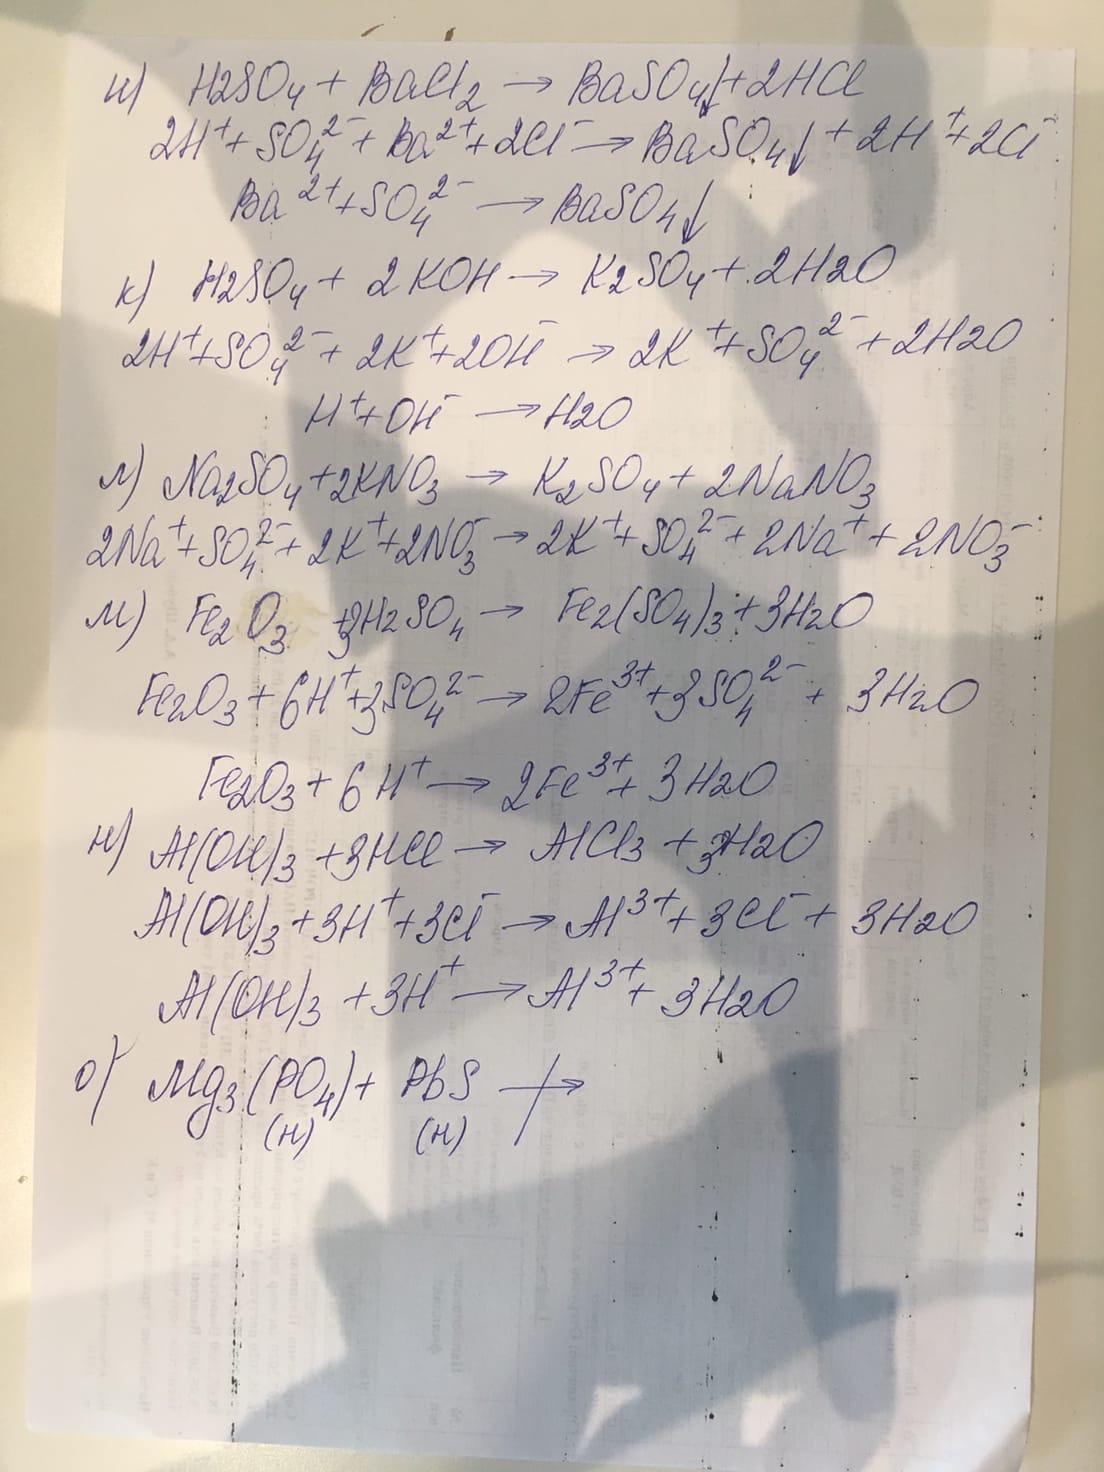 и) H2SO4 + BaCl2 → BaSO4↓ + 2HCl
2H⁺ + SO4²⁻ + Ba²⁺ + 2Cl⁻ → BaSO4↓ + 2H⁺ + 2Cl⁻
Ba²⁺ + SO4²⁻ → BaSO4↓
к) H2SO4 + 2KOH → K2SO4 + 2H2O
2H⁺ + SO4²⁻ + 2K⁺ + 2OH⁻ → 2K⁺ + SO4²⁻ + 2H2O
H⁺ + OH⁻ → H2O
л) Na2SO4 + 2KNO3 → K2SO4 + 2NaNO3
2Na⁺ + SO4²⁻ + 2K⁺ + 2NO3⁻ → 2K⁺ + SO4²⁻ + 2Na⁺ + 2NO3⁻
м) Fe2O3 + 3H2SO4 → Fe2(SO4)3 + 3H2O
Fe2O3 + 6H⁺ + 3SO4²⁻ → 2Fe³⁺ + 3SO4²⁻ + 3H2O
Fe2O3 + 6H⁺ → 2Fe³⁺ + 3H2O
н) Al(OH)3 + 3HCl → AlCl3 + 3H2O
Al(OH)3 + 3H⁺ + 3Cl⁻ → Al³⁺ + 3Cl⁻ + 3H2O
Al(OH)3 + 3H⁺ → Al³⁺ + 3H2O
о) Mg3(PO4) + PbS ↛
(н) (н)